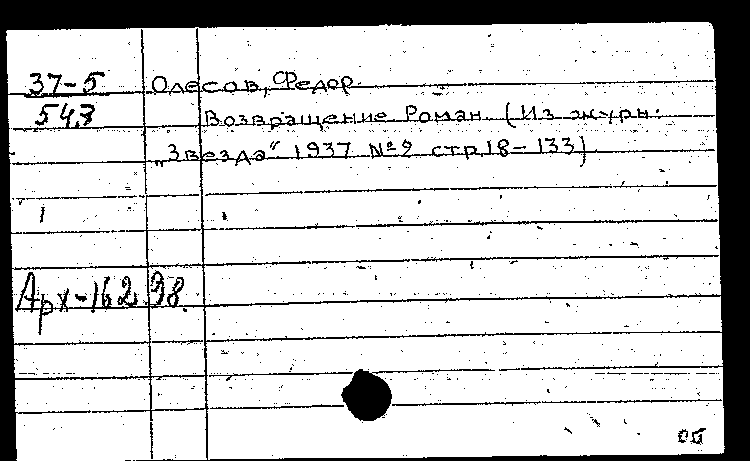 37-5 Олесов, Федор.
543 Возвращение Роман. (Из журн:
„Звезда" 1937 №2 стр. 18-133)
1
Арх-162.98.
об